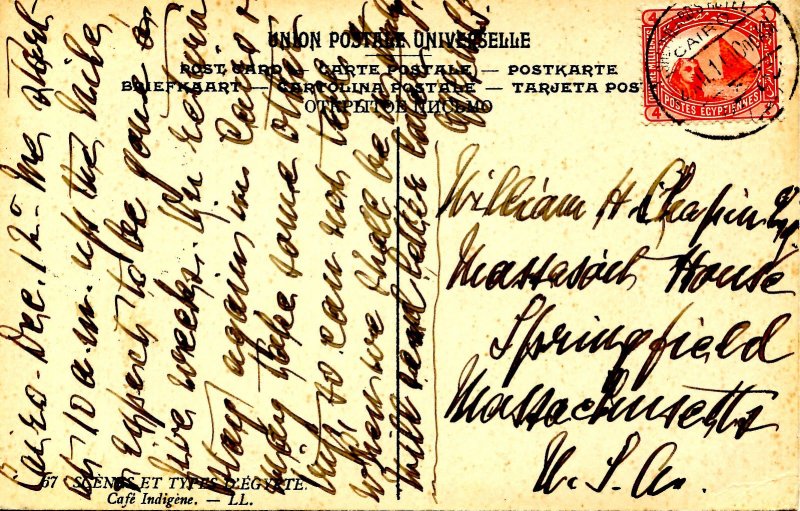 UNION POSTALE UNIVERSELLE
POST CARD — CARTE POSTALE — POSTKARTE
BRIEFKAART — CARTOLINA POSTALE — TARJETA POS
ОТКРЫТОЕ ПИСЬМО
CAIRO
4
4
4
4
POSTES EGYPTIENNES
Cairo - Dec. 12th We start
at 10 a.m. up the Nile,
expect to be gone
five weeks. On return
stay again in Cairo &
may take some other
trips to can not tell
where we shall be
Will send later
William H. Chapin
Massasoit House
Springfield
Massachusetts
U. S. A.
67 SCÈNES ET TYPES D'ÉGYPTE.
Café Indigène. — LL.